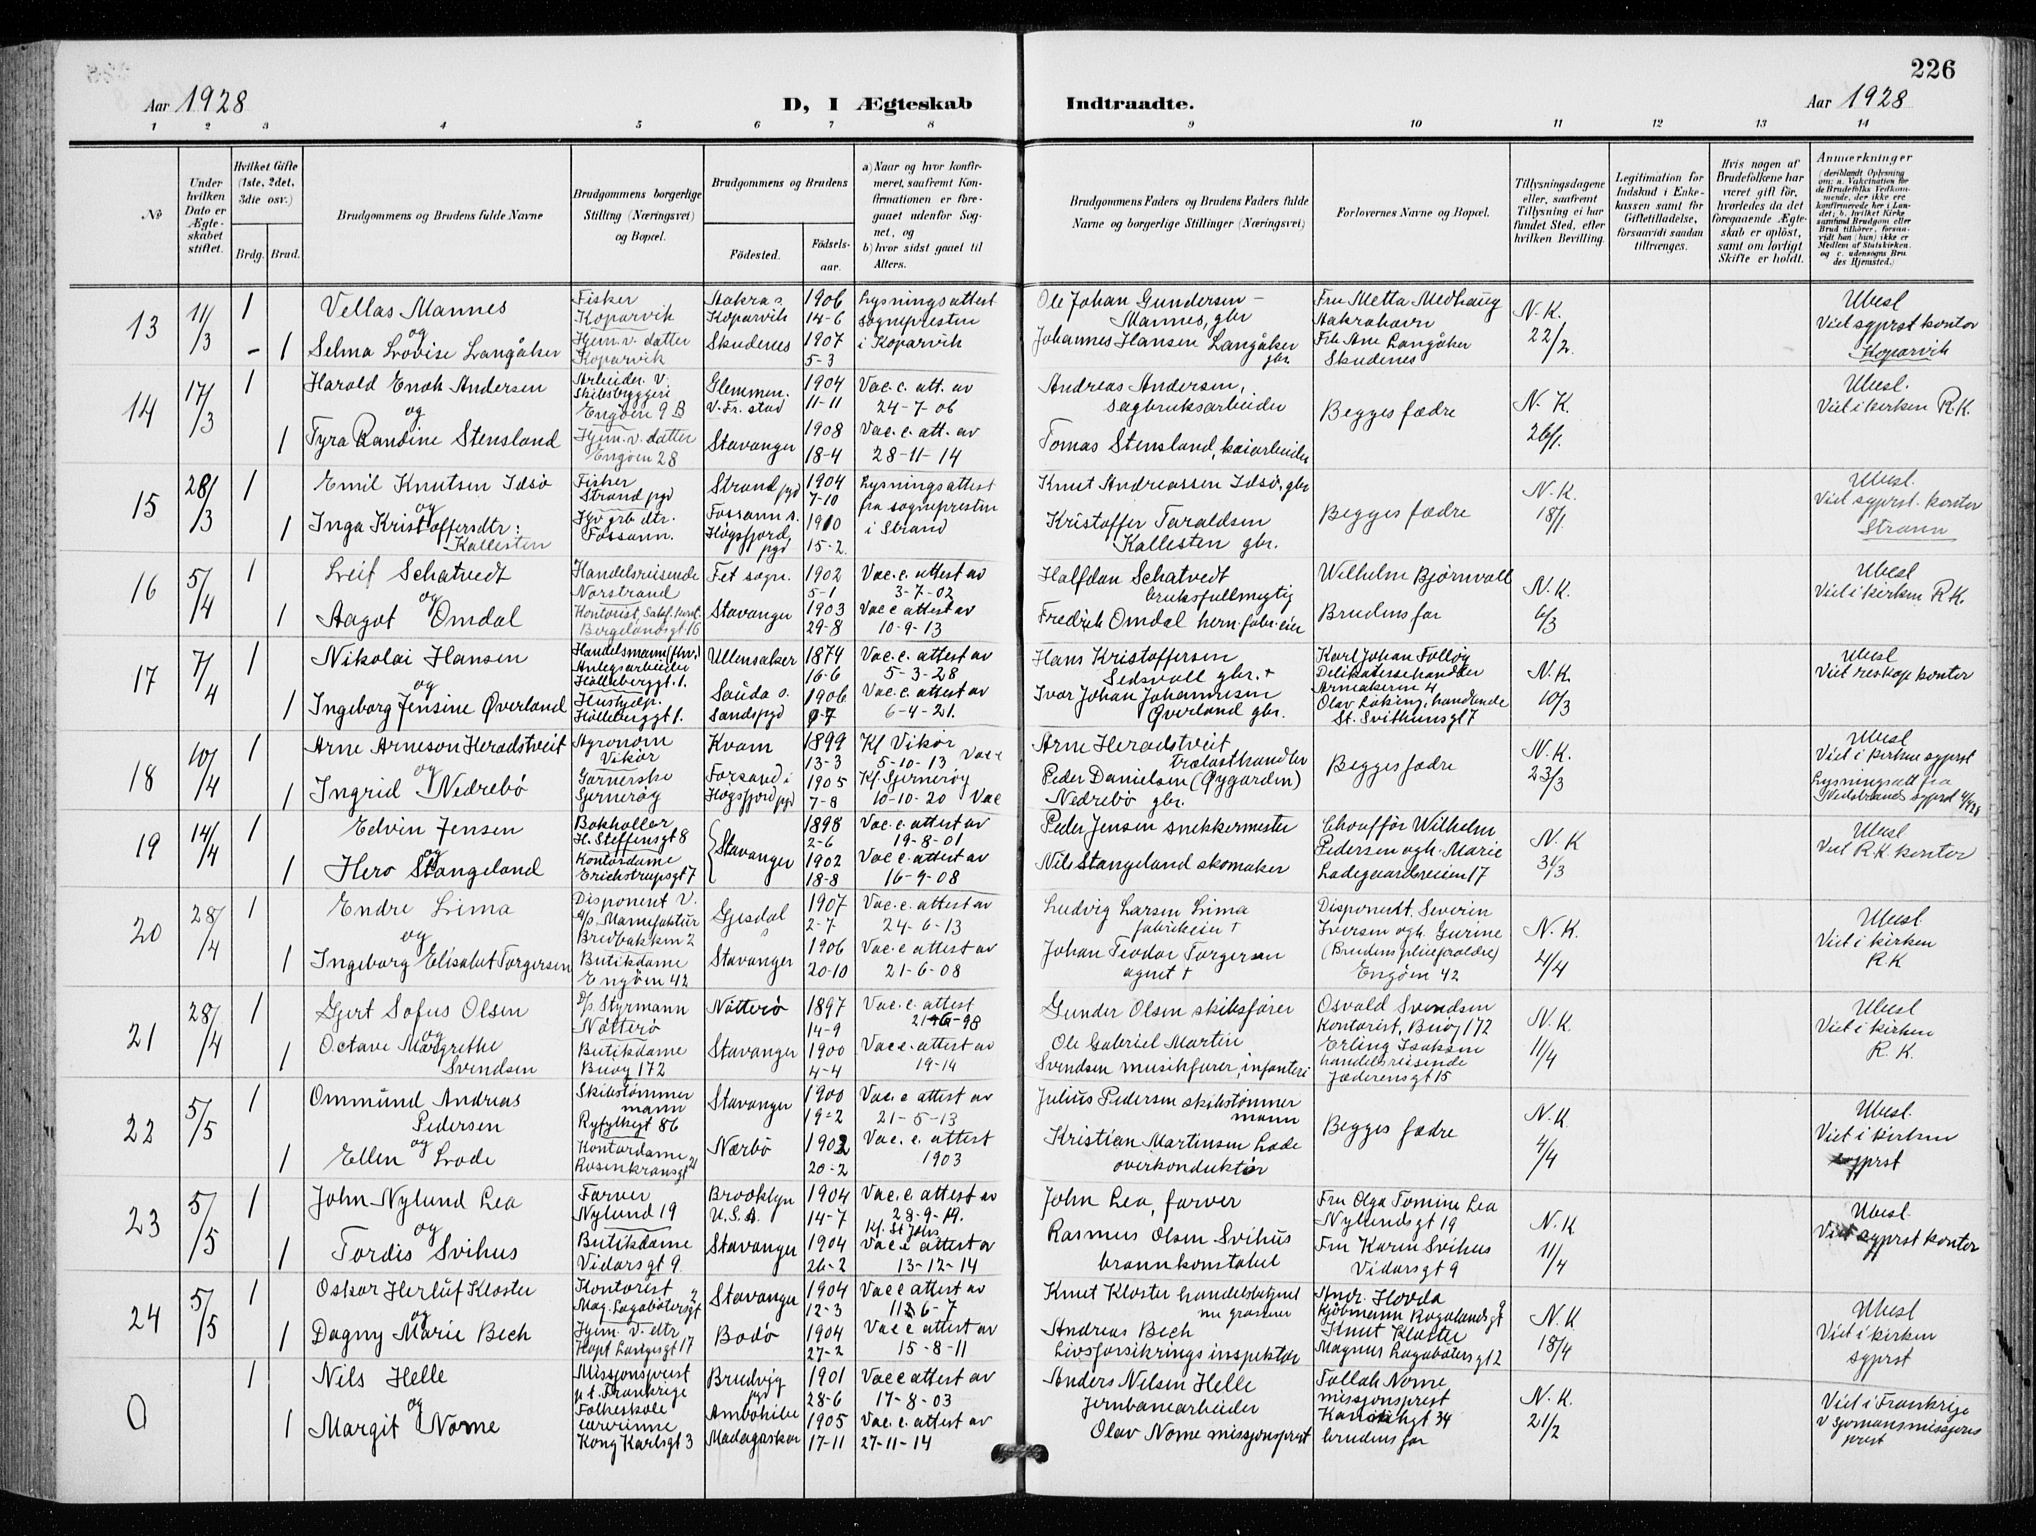 226
Aar 1928
D, I Ægteskab
Indtraadte.
Aar 1928
1 2 3 4 5 6 7 8 9 10 11 12 13 14
No
Under hvilken Dato er Ægteskabet stiftet.
Hvilket Gifte (1ste, 2det, 3die osv.)
Brdg. Brud.
Brudgommens og Brudens fulde Navne
Brudgommens borgerlige Stilling (Næringsvei) og Bopæl.
Brudgommens og Brudens
Fødested.
Fødselsaar.
a) Naar og hvor konfirmeret, saafremt Konfirmationen er foregaaet udenfor Sognet, og
b) hvor sidst gaaet til Alters.
Brudgommens Faders og Brudens Faders fulde Navne og borgerlige Stillinger (Næringsvei)
Forlovernes Navne og Bopæl.
Tillysningsdagene eller, saafremt Tillysning ei har fundet Sted, efter hvilken Bevilling.
Legitimation for Indskud i Enkekassen samt for Giftetilladelse, forsaavidt saadan tiltrænges.
Hvis nogen af Brudefolkene har været gift før, hvorledes da det foregaaende Ægteskab er opløst, samt om lovligt Skifte er holdt.
Anmærkninger
(deriblandt Oplysning om: a. Vakcination for de Brudefolks Vedkommende, der ikke ere konfirmerede her i Landet; b. hvilket Kirkesamfund Brudgom eller Brud tilhører, forsaavidt han (hun) ikke er Medlem af Statskirken, og c. udensogns Brudes Hjemsted.)
13 11/3 1 Vellas Mannes Fisker Koparvik Aakra s. Koparvik 1906 14-6 Lysningsattest sognepresten i Koparvik Ole Johan Gundersen Mannes, gbr Fru Metta Medhaug Aakrahavn N.K. 22/2. Ubesl Viet sgprst kontor Koparvik
og
1 Selma Lovise Langåker Hjem.v. datter Koparvik Skudenes 1907 5-3 Johannes Hansen Langåker gbr. Frk Ane Langåker Skudenes
14 17/3 1 Harald Enok Andersen Arbeider v. Skibsbyggeri Engøen 9 B Glemmen. v. Fr. stad 1904 11-11 Vac. c. att. av 24-7-06 Andreas Andersen, sagbruksarbeider Begges fædre N.K. 26/1. Ubesl. Viet i kirken R.K.
og
1 Tyra Randine Stensland Hjem. v. datter Engøen 28 Stavanger 1908 18-4 Vac. c. att. av 28-11-14 Tomas Stensland, kaiarbeider
15 28/3 1 Emil Knutsen Idsø Fisker Strand pgd Strand pgd 1904 7-10 Lysningsattest fra sognepresten i Strand Knut Andreassen Idsø, gbr Begges fædre N.K. 18/1. Ubesl. Viet sgprst. kontor Strann
og
1 Inga Kristoffersdtr: Kallesten Hjv grb dtr. Fossann. Fossann s. Høgsfjord pgd 1910 15-2. Kristoffer Taraldsen Kallesten gbr.
16 5/4 1 Leif Schatvedt Handelsreisende Norstrand Fet sogn. 1902 5-1 Vac. c. attest av 3-7-02 Halfdan Schatvedt bruksfullmegtig Wilhelm Bjørnvall N.K. 6/3 Ubesl Viet i kirken R.K.
og
1 Aagot Omdal Bergelandsgt 16 Stavanger 1903 29-8 Vac c attest av 10-9-13 Fredrik Omdal herm.fabr. eier Brudens far
17 7/4 1 Nikolai Hansen Ullensaker 1874 16-6 Vac. c. attest av 5-3-28 Hans Kristoffersen gbr. + Karl Johan Delikatessehandler N.K. 10/3 Ubesl Viet reskap kontor
og
1 Ingeborg Jensine Øverland Husholdn. Sauda s. Sands pgd 1906 Vac. c. attest av 6-4-21. Ivar Johan Johannesen Øverland gbr. St. Svithunsgt 7
18 10/4 1 Arne Arneson Heradstveit Agronom Vikør Kvam 1899 13-3 Kf Vikør 5-10-13 Vac c Arne Heradstveit trælasthandler Begges fædre N.K. 23/3 Ubesl Viet i kirken sgprst
og
1 Ingrid Nedrebø Gjernerøy Forsand i Høgsfjord pgd 1905 7-8 Kf. Gjernerøy 10-10-20 Vac Peder Danielsen (Øygarden) Nedrebø gbr. Lysningsatt fra
19 14/4 1 Edvin Jensen Bokholder H. Steffensgt 8 Stavanger 1898 2-6 Vac. c. attest av 19-8-01 Peder Jensen snekkermester Chauffør Wilhelm Pedersen ogh. Marie Ladegaardsveien 17 N.K 31/3 Ubesl Viet R.K. kontor
og
1 Hero Stangeland Kontordame Erichstrupsgt 7 1902 18-8 Vac c. attest av 16-9-08 Nils Stangeland skomaker
20 28/4 1 Endre Lima Disponent v. a/s Manufaktur Bredbakken 2 Gjesdal 1907 2-7 Vac. c. attest av 24-6-13 Ludvig Larsen Lima fabrikeier + Disponent Severin Iversen ogh. Gurine (Brudens pleieforældre) Engøen 42 N.K. 4/4 Ubesl. Viet i kirken R.K
og
1 Ingeborg Elisabet Torgersen Butikdame Engøen 42 Stavanger 1906 20-10 Vac. c attest av 21-6-08 Johan Teodor Torgersen agent +
21 28/4 1 Gjert Sofus Olsen Styrmann Nøtterø Nøtterø 1897 14-9 Vac. c. attest Gunder Olsen skibsfører Osvald Svendsen Kontorist, Buøy 172 N.K. 11/4 Ubesl Viet i kirken R.K.
og
1 Octave Margrethe Svendsen Butikdame Buøy 172 Stavanger 1900 4-4 Vac c. attest av 19-14 Ole Gabriel Martin Svendsen musikfurer, infanteri Erling Isaksen handelsreisende Jæderensgt 15
22 5/5 1 Ommund Andreas Pedersen Skibstømmermann Ryfylkegt 86 Stavanger 1900 19-2 Vac. c attest av 21-5-13 Julius Pedersen skibstømmermann Begges fædre N.K 4/4 Ubesl. Viet i kirken sgprst
og
1 Ellen Lode Kontordame Rosenkransgt 21 Nærbø 1902 20-2 Vac. c. attest 1903 Kristian Martinsen Lode overkonduktør
23 5/5 1 John Nylund Lea Farver Nylund 19 Brooklyn U.S.A. 1904 14-7 Vac. c. attest av 28-9-19. Kf. St Johs John Lea, farver Fru Olga Tomine Lea Nylundsgt 19 N.K 11/4 Ubesl. Viet sgprst kontor
og
1 Tordis Svihus Butikdame Vidarsgt 9 Stavanger 1904 26-2 Vac c attest av 13-12-14 Rasmus Olsen Svihus brannkonstabel Fru Karin Svihus Vidarsgt 9
24 5/5 1 Oskar Herluf Kloster Kontorist Mag. Lagabøtersgt 2 Stavanger 1904 12-3 Vac c attest av Knut Kloster handelsbetjent nu grosserer Andr. Hovda Kjøbmann Rogalandsgt 9 N.K 18/4 Ubesl Viet i kirken sgprst
og
1 Dagny Marie Bech Hjem. v. dtr Bodø 1904 27-2 Vac c attest av 15-8-11 Andreas Bech Livsforsikringsinspektør Knut Kloster Magnus Lagabøtersgt 2
0 1 Nils Helle Missjonsprest p.t. Frankrige Bruvig pgd 1901 28-6 Vac c attest av 17-8-03 Anders Nilsen Helle Jernbanearbeider Follak Nome missjonsprest N.K. 21/2 Viet i Frankrige v sjømansmissjons prest
og
1 Margit Nome Folkeskole lærerinne Kong Karlsgt 3 Ambohibe Madagaskar 1905 17-11 Vac. c. attest av 27-11-14 Olav Nome missjonsprest brudens far